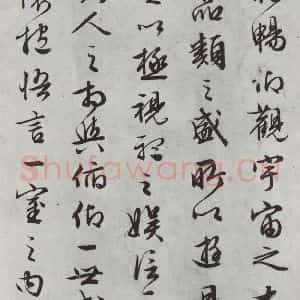 暢仰觀宇宙之大
品類之盛所以遊目
以極視聽之娛信
人之相與俯仰一世
懷抱悟言一室之内
Shufawang.Cn